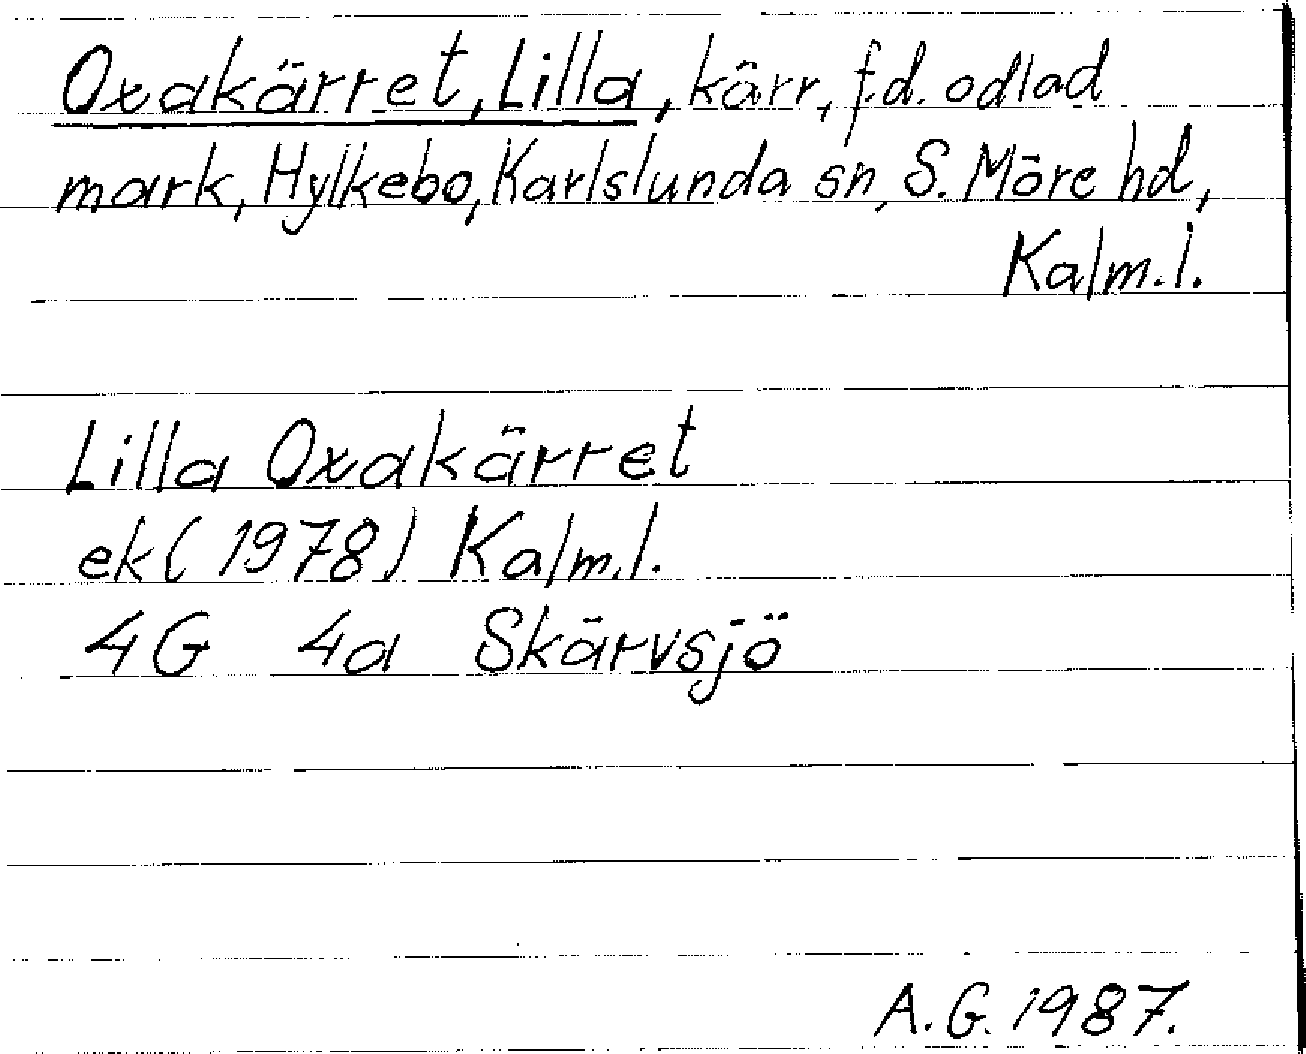 Oxakärret, Lilla, kärr, f.d. odlad
mark, Hylkebo, Karlslunda sn, S. Möre hd,
Kalm.l.
Lilla Oxakärret
ek (1978) Kalm.l.
4G 4a Skärvsjö
A.G. 1987.